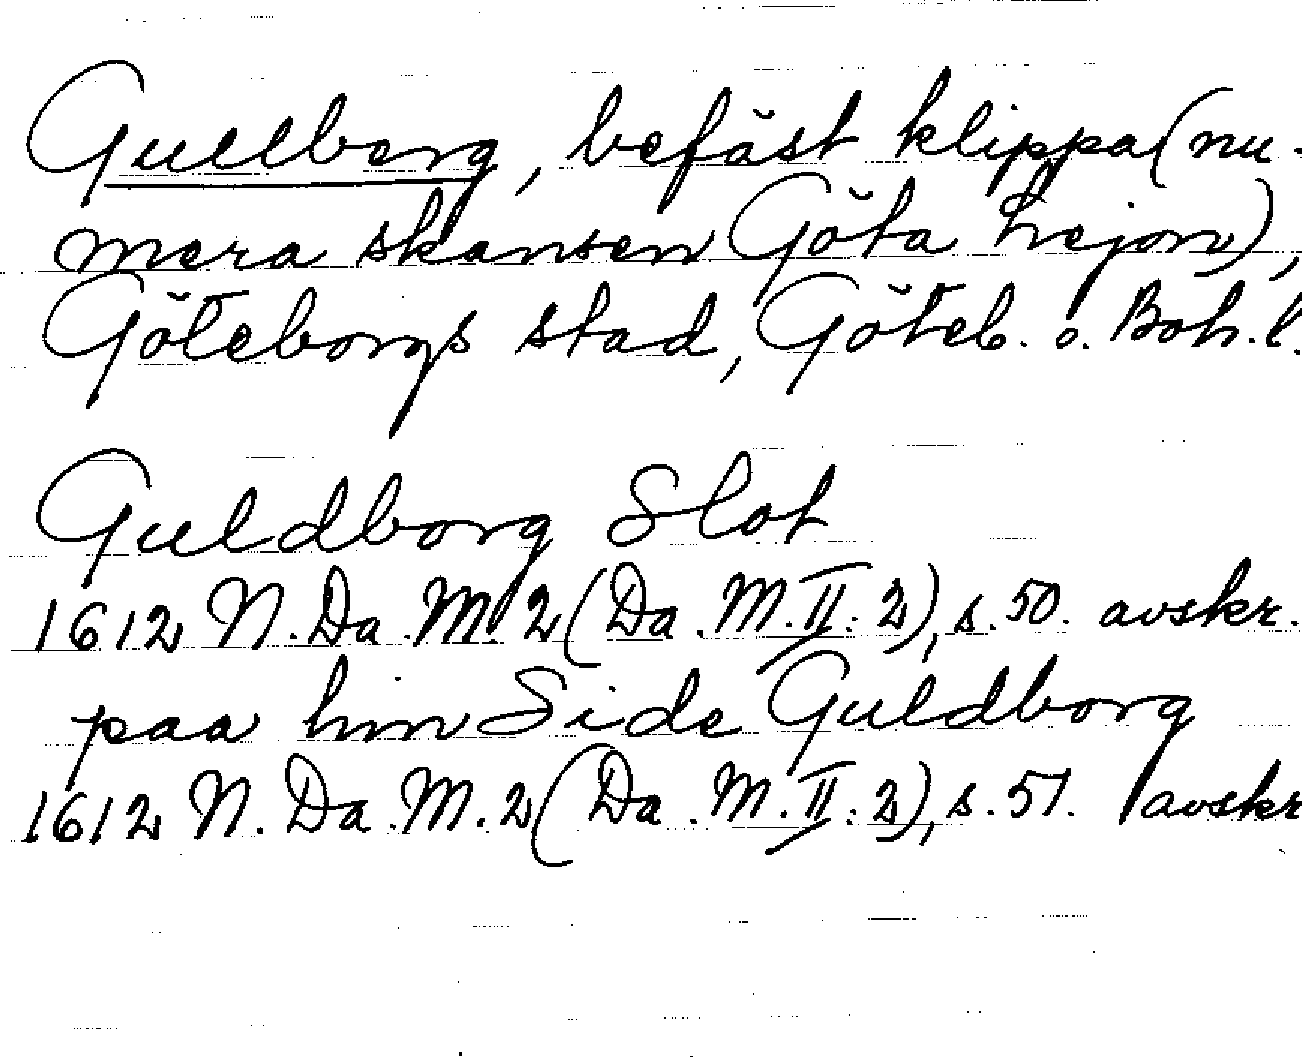 Gullberg, befäst klippa (nu-
mera skansen Göta Lejon),
Göteborgs stad, Göteb. o. Boh. l.
Guldborg Slot
1612 N. Da. M. 2 (Da. M. II: 2), s. 50. avskr.
paa hin Side Guldborg
1612 N. Da. M. 2 (Da. M. II: 2), s. 51. avskr